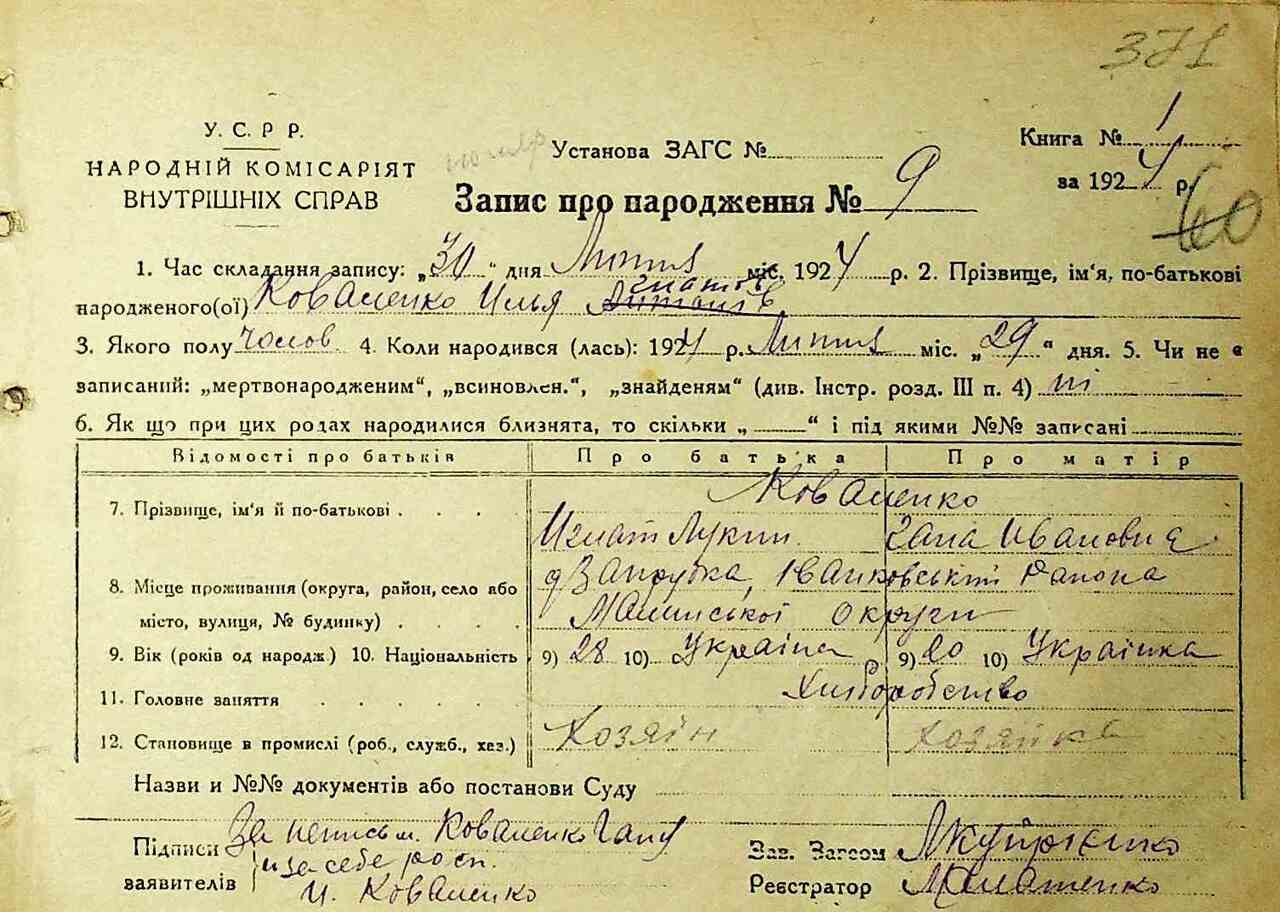 371
У. С. Р Р.
НАРОДНІЙ КОМІСАРІЯТ
ВНУТРІШНІХ СПРАВ
Установа ЗАГС №
Книга № 1
за 1924 р.
60
Запис про народження № 9
1. Час складання запису: „30" дня Липня міс. 1924 р. 2. Прізвище, ім'я, по-батькові
народженого(ої) Коваленко Илья
3. Якого полу чолов. 4. Коли народився (лась): 1924 р. Липня міс. „29" дня. 5. Чи не є
записаний: „мертвонародженим", „всиновлен.", „знайденям" (див. Інстр. розд. III п. 4) ні
6. Як що при цих родах народилися близнята, то скільки „ " і під якими №№ записані
Відомості про батьків Про батька Про матір
7. Прізвище, ім'я й по-батькові . . . Коваленко
Игнат Лукин Гапа Ивановна
8. Місце проживання (округа, район, село або Іванковський Района
місто, вулиця, № будинку) . . . . Малинської округи
9. Вік (років од народж.) 10. Національність 9) 28 10) Україна 9) 20 10) Українка
11. Головне заняття . . . . . . Хліборобство
12. Становище в промислі (роб., служб., хаз.) Хозяйн Хозяйка
Назви и №№ документів або постанови Суду
Підписи За неписьм. Коваленко Гапу
и за себе росп.
заявителів И. Коваленко
Зав. Загсом
Реєстратор